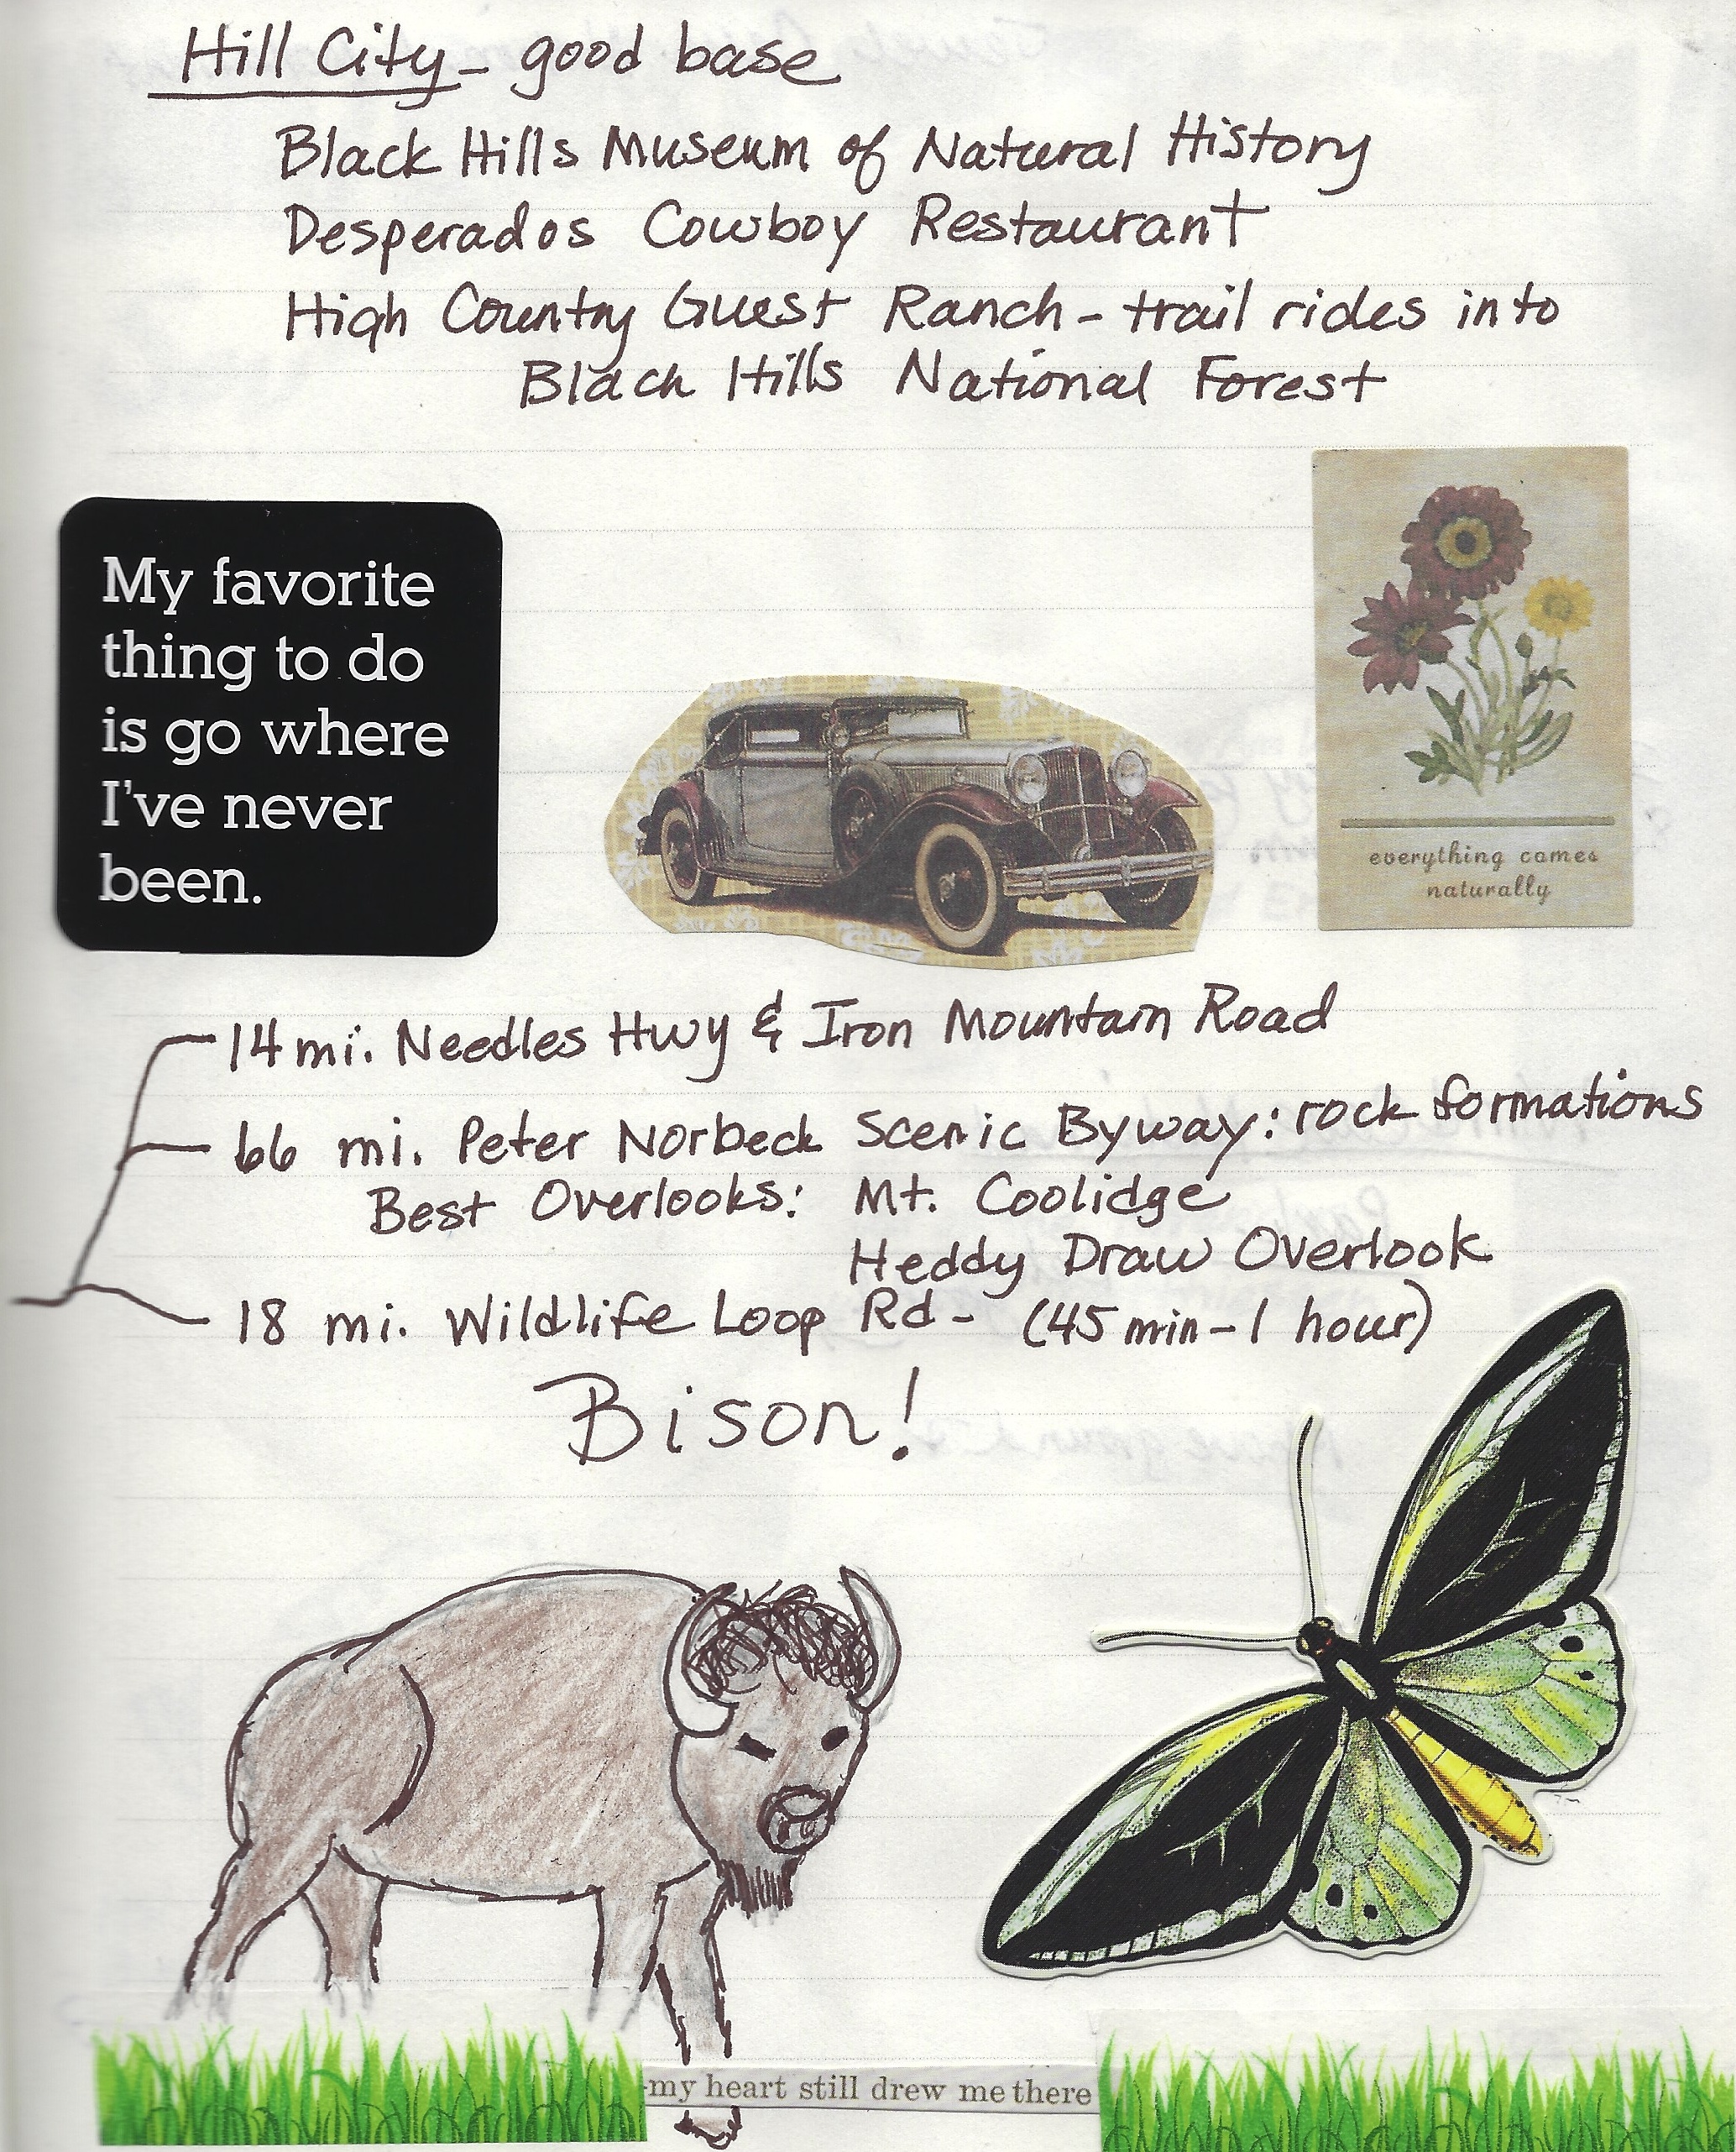 Hill City - good base
Black Hills Museum of Natural History
Desperados Cowboy Restaurant
High Country Guest Ranch - trail rides into
Black Hills National Forest
My favorite
thing to do
is go where
I've never
been.
everything comes
naturally
14 mi. Needles Hwy & Iron Mountain Road
66 mi. Peter Norbeck Scenic Byway: rock formations
Best Overlooks: Mt. Coolidge
Heddy Draw Overlook
18 mi. Wildlife Loop Rd - (45 min - 1 hour)
Bison!
my heart still drew me there